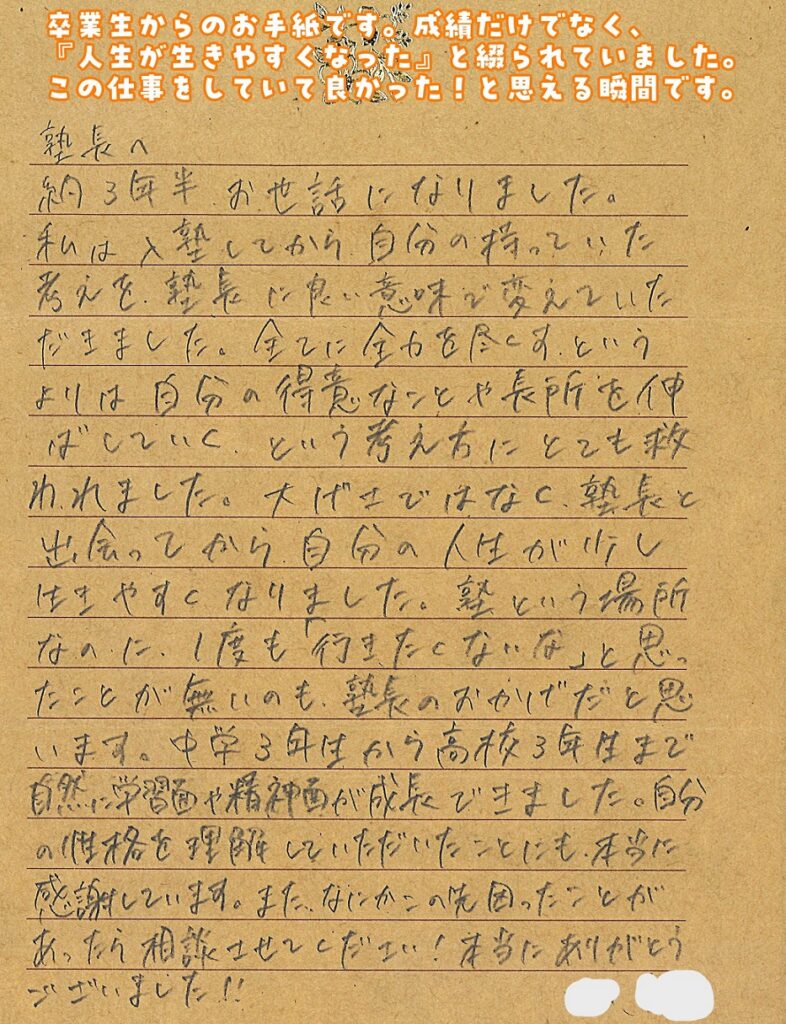 卒業生からのお手紙です。成績だけでなく、
『人生が生きやすくなった』と綴られていました。
この仕事をしていて良かった！と思える瞬間です。
塾長へ
約3年半お世話になりました。
私は入塾してから自分の持っていた
考えを、塾長に良い意味で変えていた
だきました。全てに全力を尽くす、という
よりは自分の得意なことや長所を伸
ばしていく、という考え方にとても救
われました。大げさではなく、塾長と
出会ってから自分の人生が少し
生きやすくなりました。塾という場所
なのに、1度も「行きたくないな」と思っ
たことが無いのも、塾長のおかげだと思
います。中学3年生から高校3年生まで
自然に学習面や精神面が成長できました。自分
の性格を理解していただいたことにも、本当に
感謝しています。また、なにかこの先困ったことが
あったら相談させてください！本当にありがとう
ございました!!